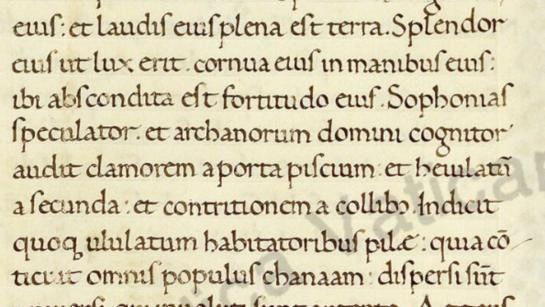 eius: et laudis eius plena est terra. Splendor
eius ut lux erit. cornua eius in manibus eius:
ibi abscondita est fortitudo eius. Sophonias
speculator. et archanorum domini cognitor
audit clamorem a porta piscium: et heiulatū
a secunda: et contritionem a collibꝫ. Indicit
quoqꝫ ululatum habitatoribus pilę: quia cō
ticuit omnis populus chanaam: dispersi sūt